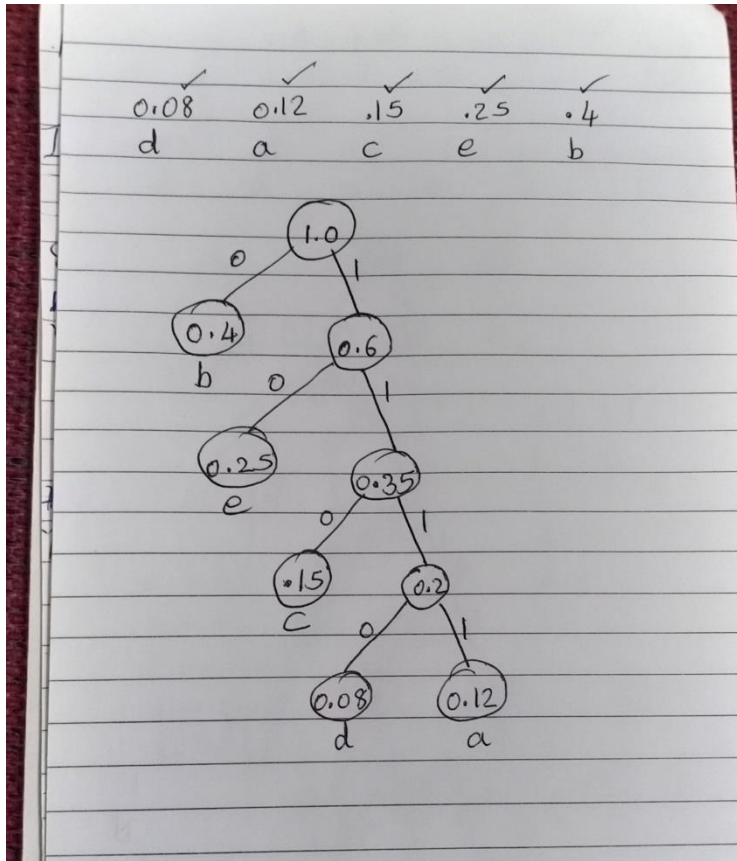 0.08 0.12 .15 .25 .4
d a c e b
1.0
0 1
0.4 0.6
b 0 1
0.25 0.35
e 0 1
.15 0.2
c 0 1
0.08 0.12
d a